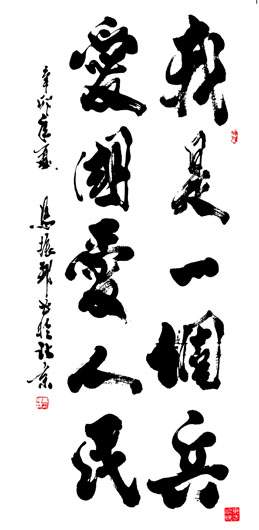 我是一個兵
愛國愛人民
辛卯年夏 馬振邦書於北京